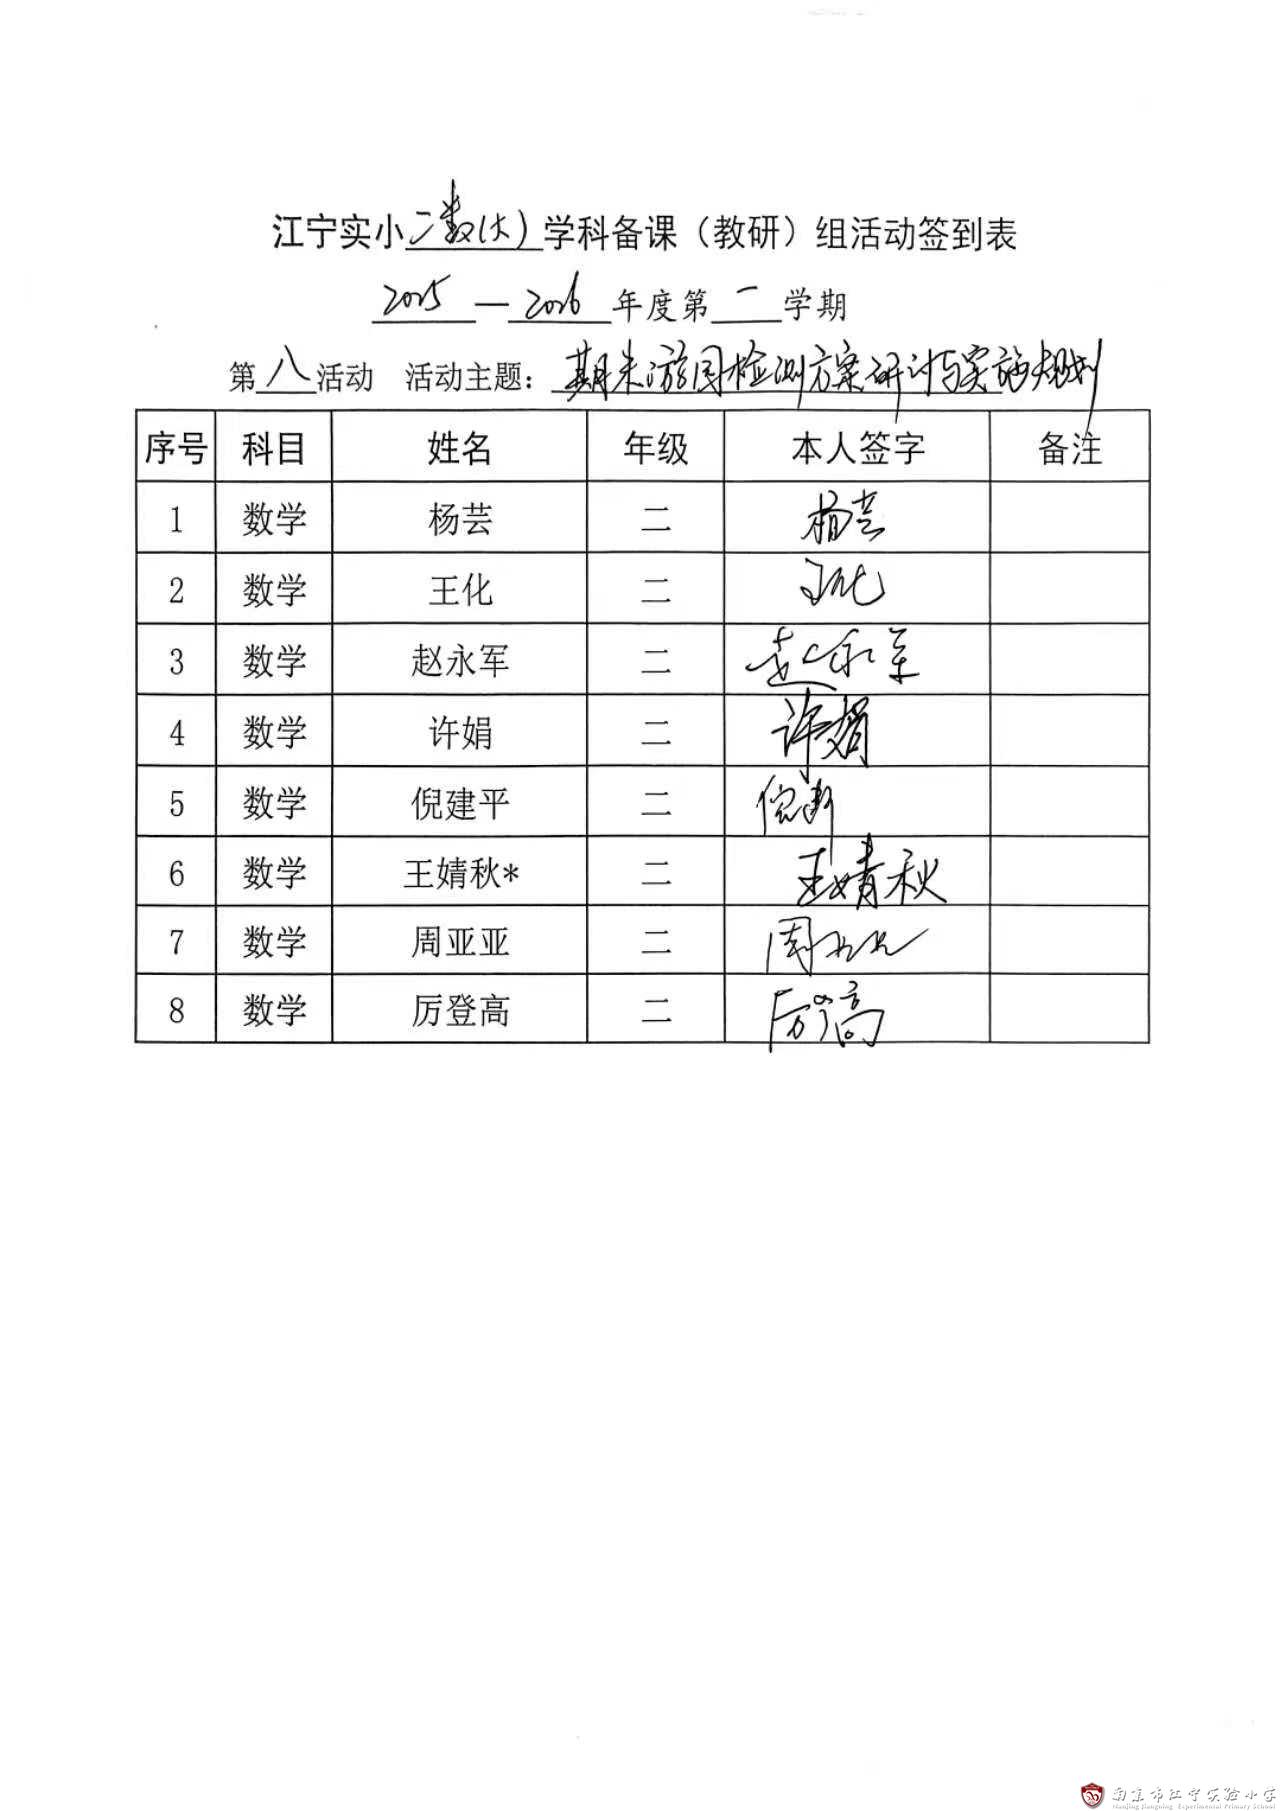 江宁实小二数(大)学科备课（教研）组活动签到表
2025—2026年度第一学期
第八活动 活动主题：期末游园检测方案研讨与实施规划
序号 科目 姓名 年级 本人签字 备注
1 数学 杨芸 二 杨芸
2 数学 王化 二 王化
3 数学 赵永军 二 赵永军
4 数学 许娟 二 许娟
5 数学 倪建平 二
6 数学 王婧秋* 二 王婧秋
7 数学 周亚亚 二 周亚亚
8 数学 厉登高 二 厉登高
南京市江宁实验小学
Nanjing Jiangning Experimental Primary School